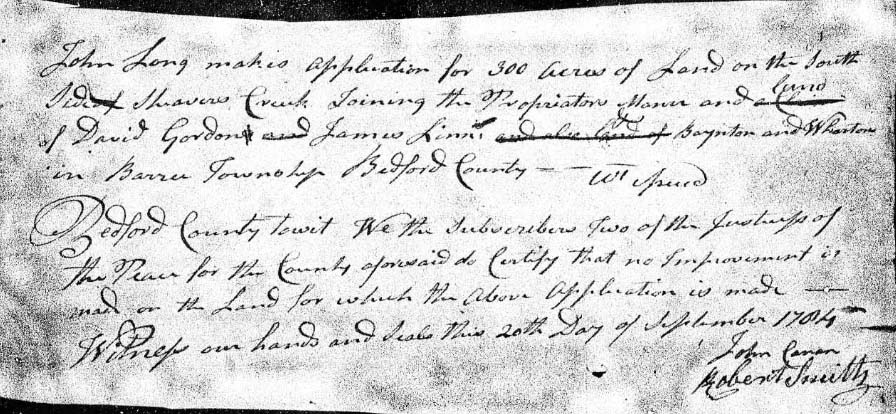 John Long makes Application for 300 Acres of Land on the South
Side of Shavers Creek Joining the Propriators Maner and a Land
of David Gordon and James Linn and also land of Baynton and Wharton
in Barree Township Bedford County — —
Bedford County towit We the Subscribers Two of the Justices of
the Peace for the County aforesaid do Certify that no Improvement is
made on the Land for which the Above Application is made —
Witness our hands and Seals this 20th Day of September 1784
John Canan
Robert Smith